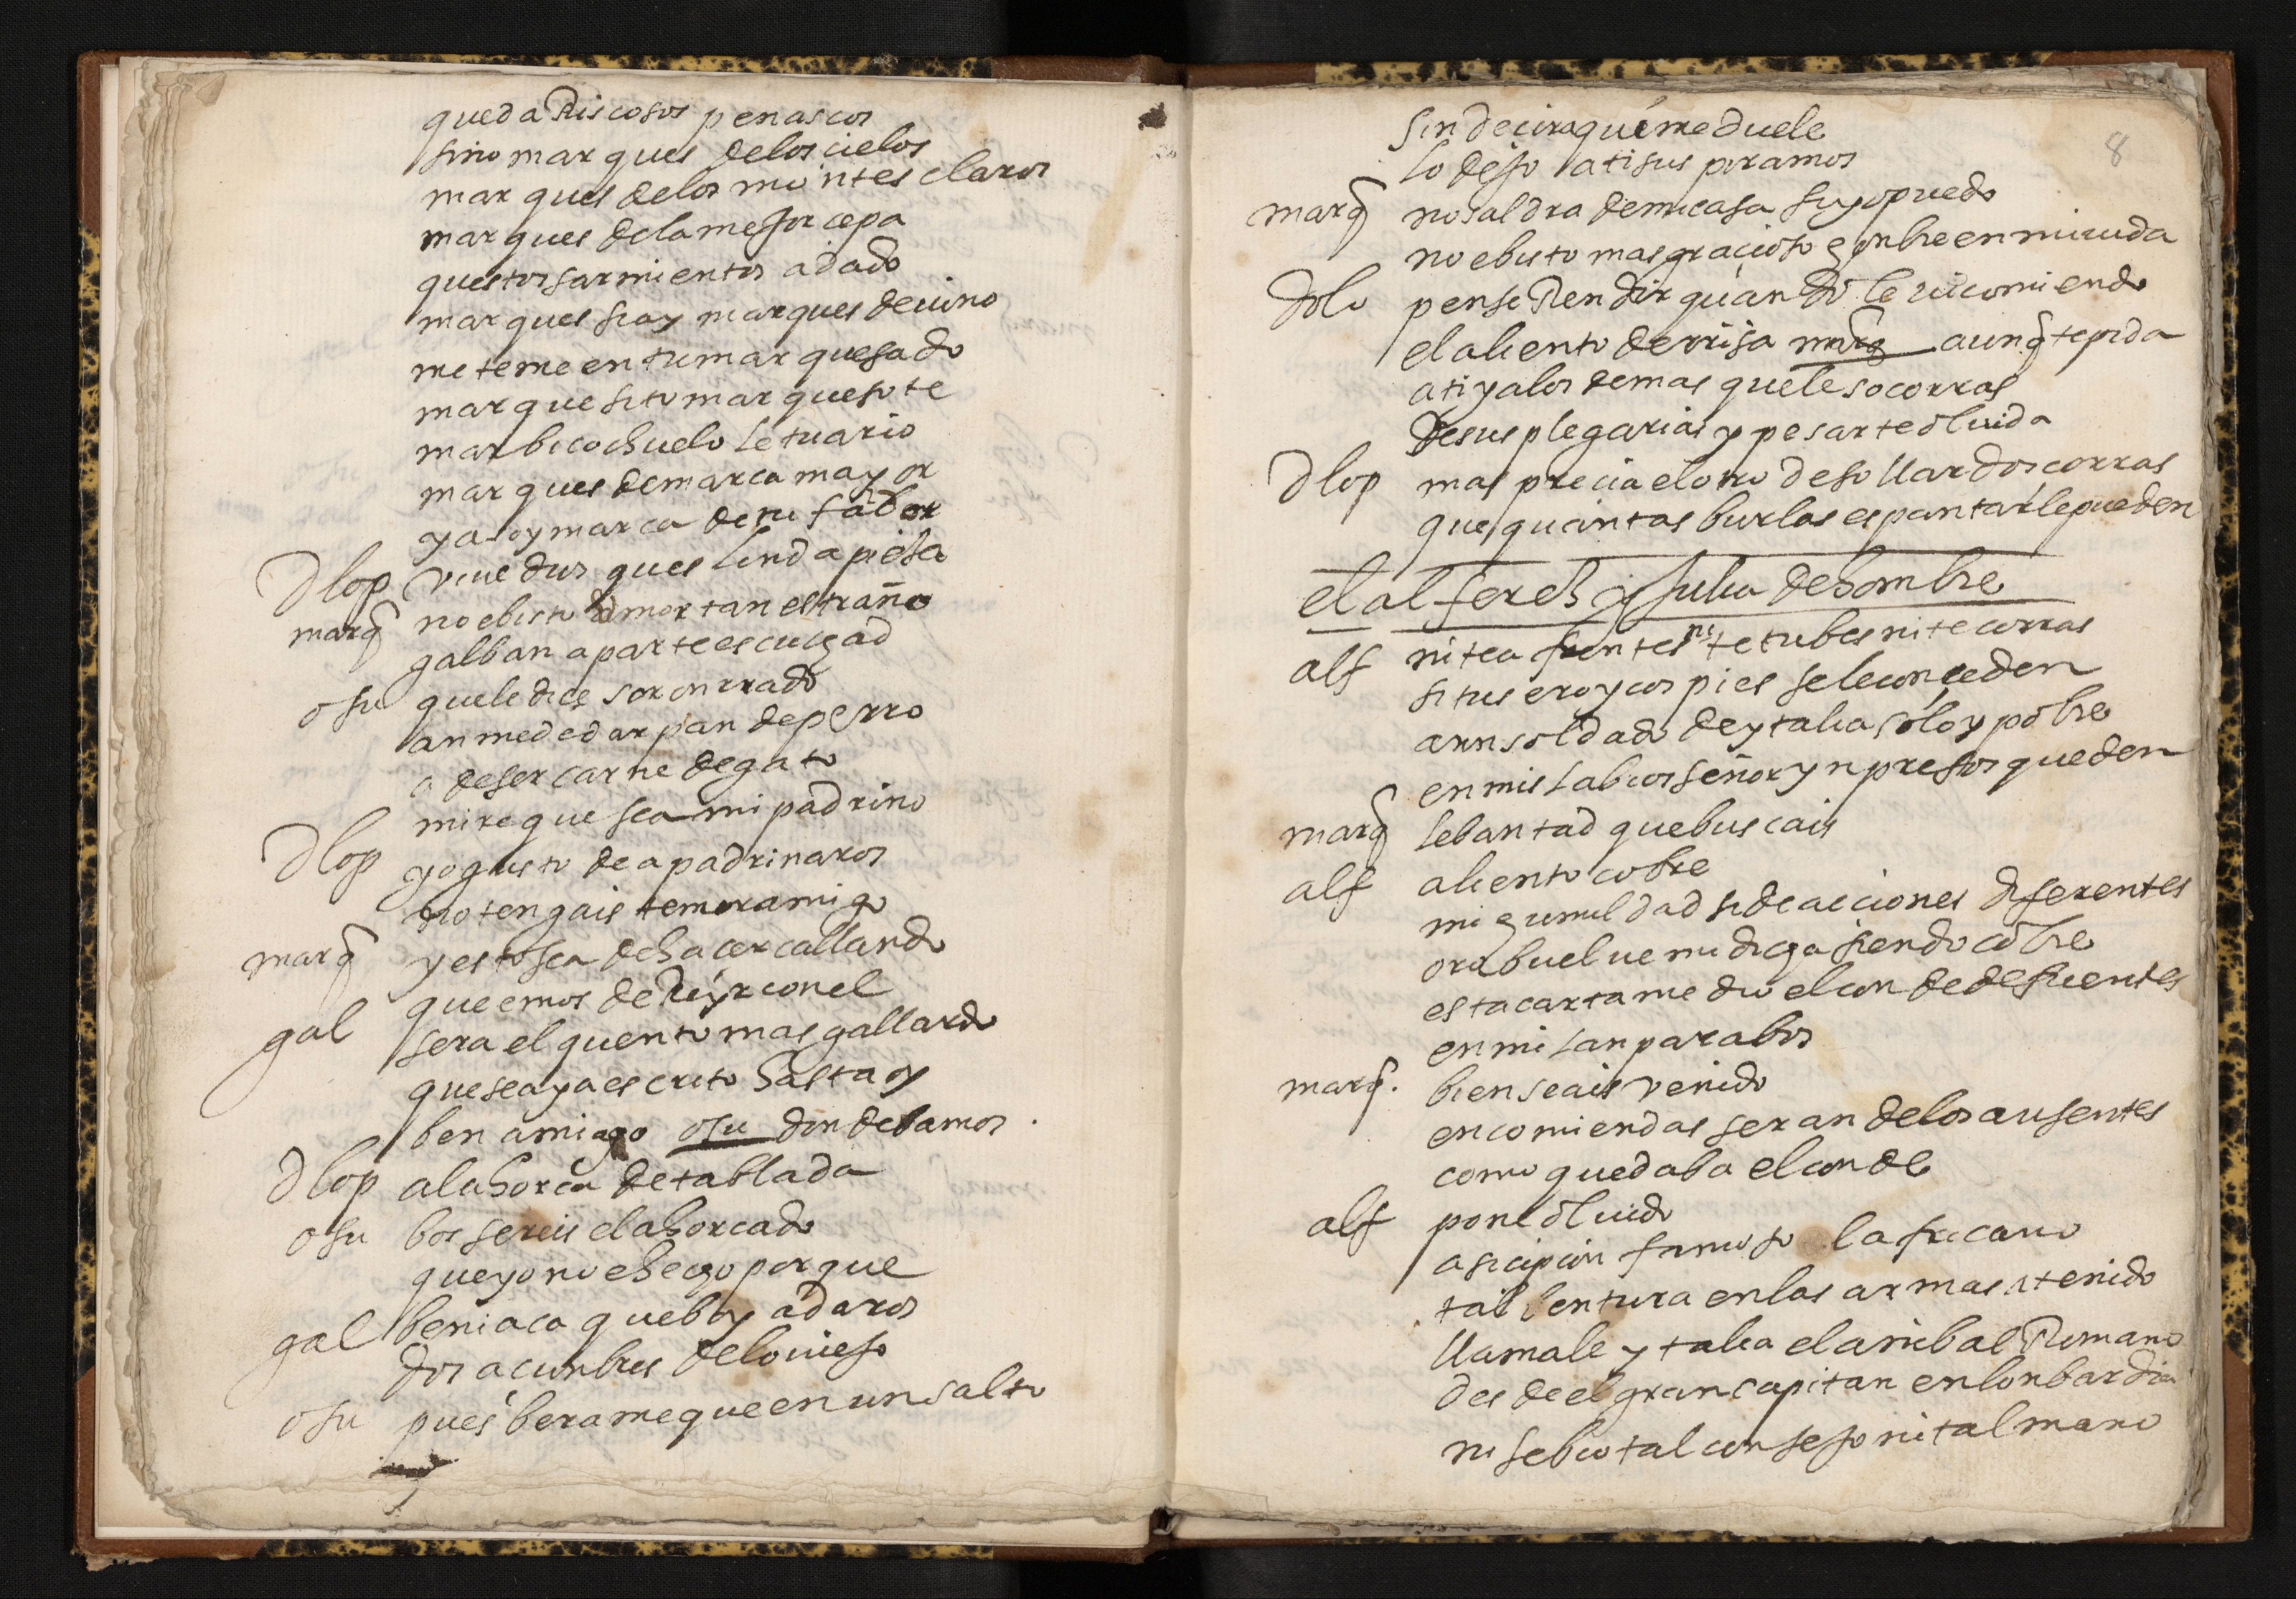 queda Riscosos penascos
sino marques delos cielos
marques delos montes claros
marques dela mejor cepa
questos sarmientos a dado
marques si ay marques de vino
meteme en tu marquesado
marquesito marquesote
marbicochuelo letuario
marques de marca mayor
ya soy marca de tu fabor
D lop vive dios ques linda piesa
marq̃ no e bisto umor tan estraño
galban aparte escuchad
osu que le dice sor onrrado
an me de dar pan de perro
a de ser carne de gato
mire que sea mi padrino
D lop yo gusto de apadrinaros
no tengais temor amigo
marq̃ y esto sea de hacer callando
que emos de Reyr con el
gal sera el quento mas gallardo
que se aya escrito hasta oy
ben amigo osu donde bamos.
D lop a la horca de tablada
osu bos sereis el ahorcado
que yo no e hecho por que
gal beni aca que boy a daros
dos acunbres de lo viejo
osu pues berame que en un salto
8
sin decir aqui me duele
lo dejo a ti sus poramos
marq̃ no saldra de mi casa si yo puedo
no e bisto mas gracioso honbre en mi vida
dolo pense Rendir quando le vi comiendo
el aliento de rrisa marq̃ aunq̃ te pida
a ti y a los demas que le socorras
de sus plegarias y pesar te olvida
D lop mas precia el otro desollar dos corras
que quantas burlas espantarle pueden
el alferes y julia de hombre
alf ni te afrentes ni te tubes ni te corras
si tus eroycos pies se le conceden
a un soldado de ytalia solo y pobre
en mis labios señor ynpresos queden
marq̃ lebantad que buscais
alf aliento cobre
mi humildad si de acciones diferentes
oro buelve mi dicha siendo cobre
esta carta me dio el conde de fuentes
en milan para bos
marq̃. bien seais venido
encomiendas seran de los ausentes
como quedaba el conde
alf pone olvido
a sicipion famoso l africano
tal bentura en las armas a tenido
llamale ytalia el anibal Romano
desde el gran capitan en lonbardia
ni se bio tal consejo ni tal mano